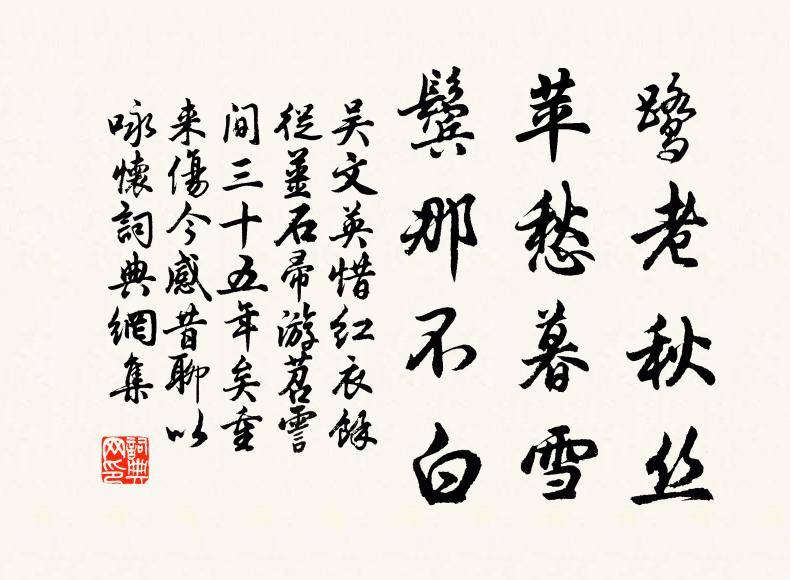 鹭老秋丝
苹愁暮雪
鬓那不白
吴文英惜红衣馀
從薑石帚游苕霅
间三十五年矣重
来傷今感昔聊以
咏懷詞典網集
詞典
网印